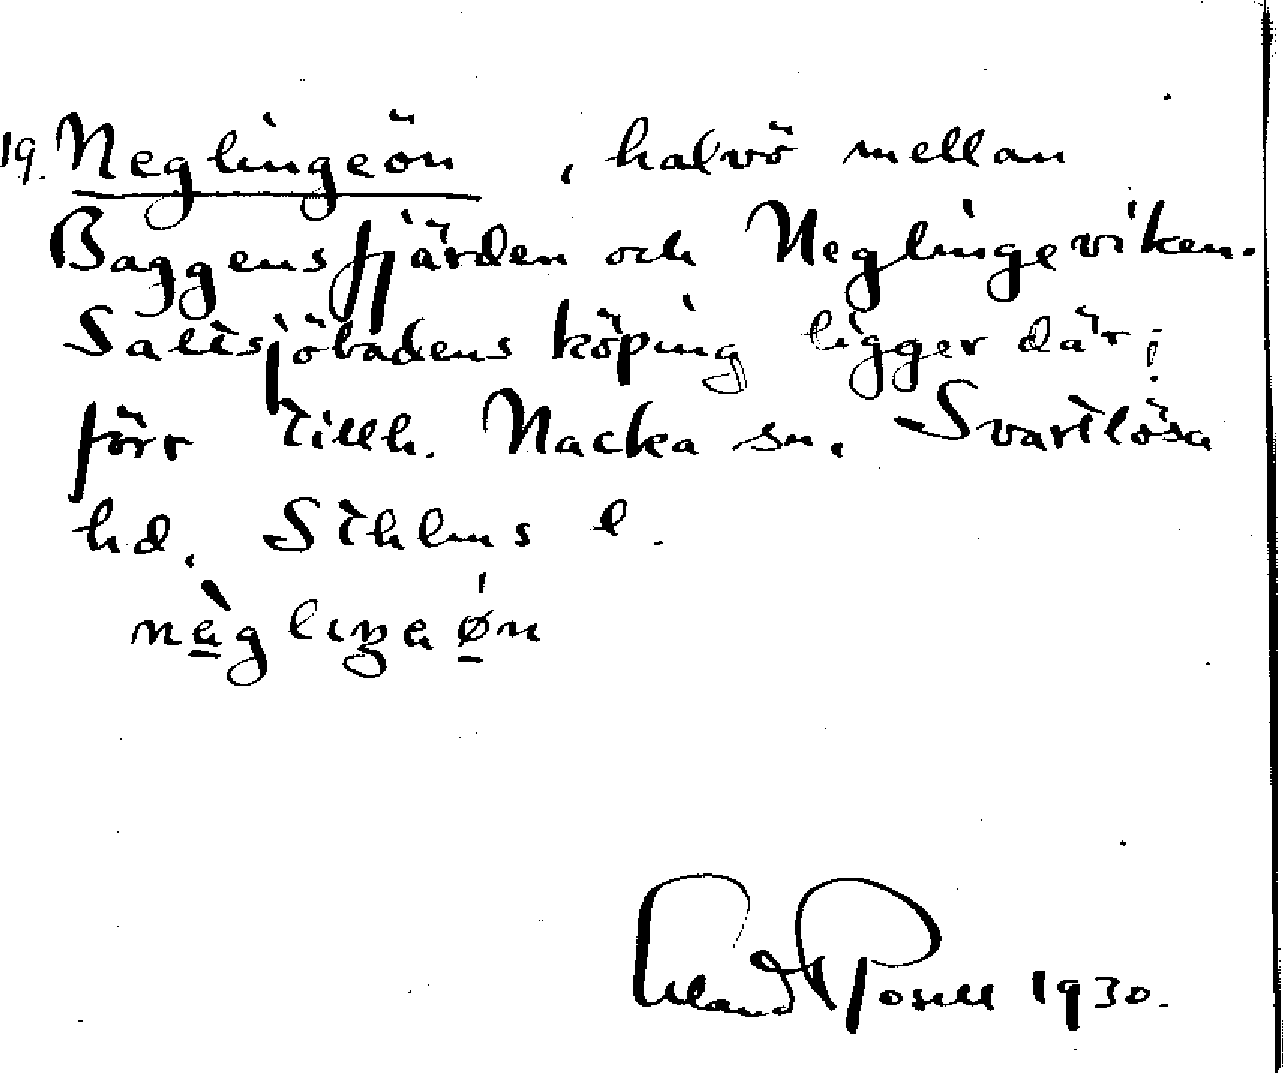 19. Neglingeön, halvö mellan
Baggensfjärden och Neglingeviken.
Saltsjöbadens köping ligger där;
förr tillh. Nacka sn. Svartlösa
hd. Sthlms l.
nä̀gliŋaøn
1930.